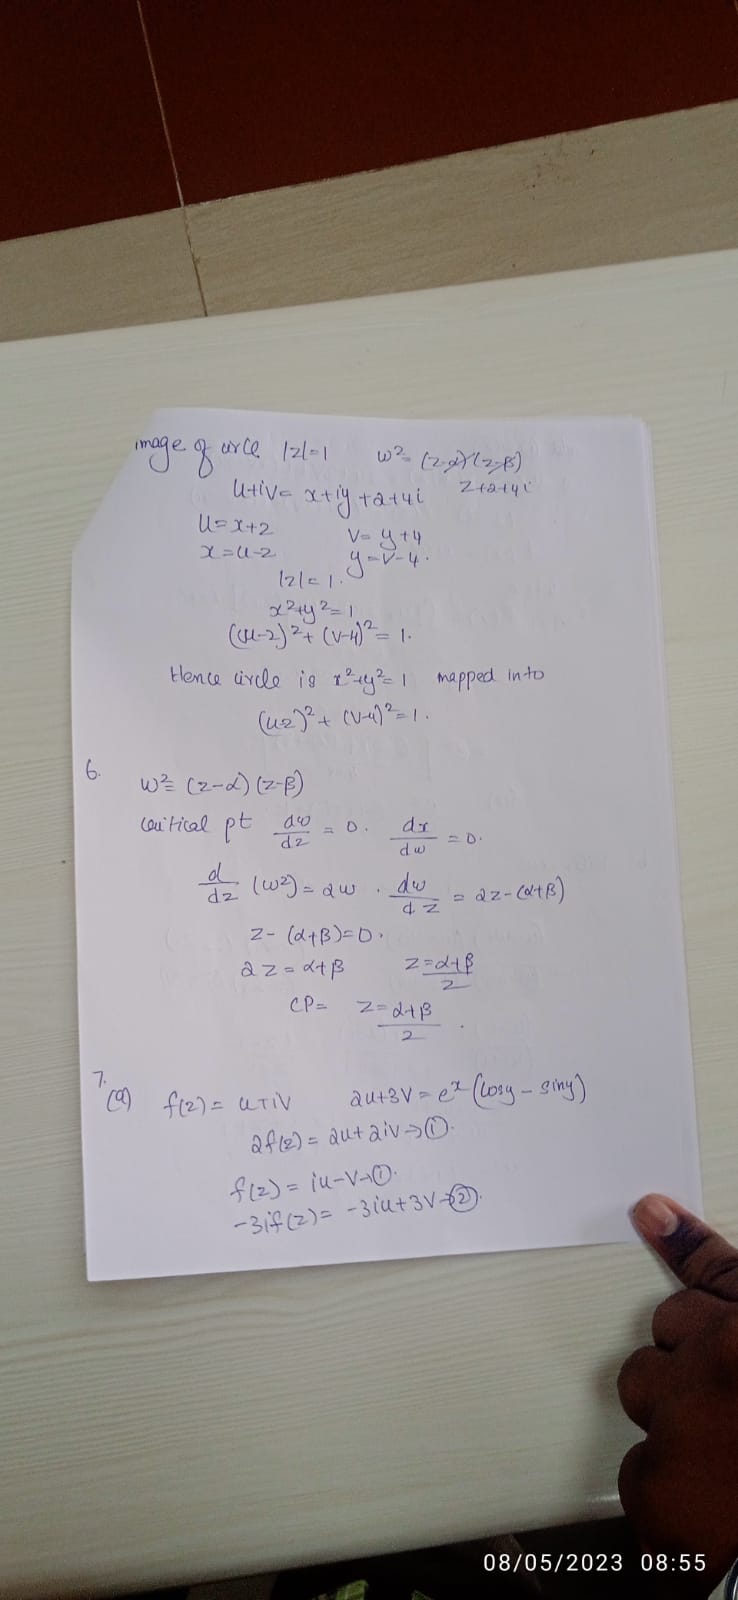 image of circle |z|=1 w²= (z-α)(z-β)
u+iv= x+iy+2+4i z+2+4i
u=x+2 v= y+4
x=u-2 y=v-4.
|z|=1.
x²+y²=1
(u-2)²+(v-4)²=1.
Hence circle is x²+y²=1 mapped into
(u-2)²+(v-4)²=1.
6. w²= (z-α)(z-β)
critical pt dw/dz = 0. dz/dw = 0.
d/dz (w²)= 2w . dw/dz = 2z-(α+β)
z-(α+β)=0.
2z=α+β z=α+β/2
CP= z=α+β/2.
7. (a) f(z)= u+iv 2u+3v=eˣ(cosy-siny)
2f(z)= 2u+2iv→①.
f(z)= iu-v→①.
-3if(z)= -3iu+3v→②.
08/05/2023 08:55